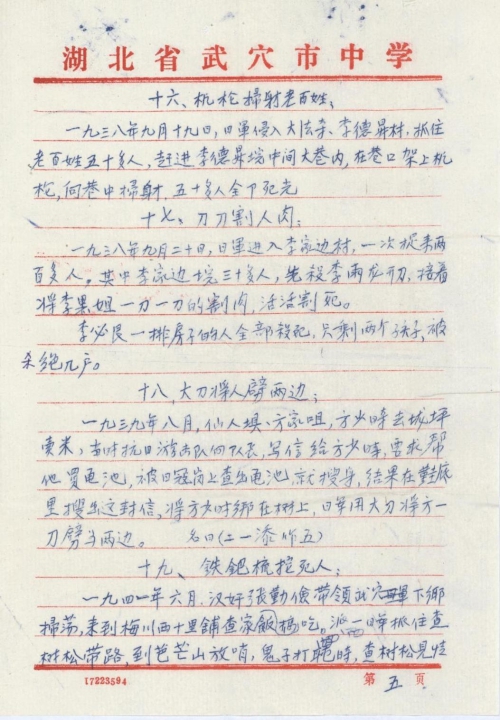 湖北省武穴市中学
十六、机枪掃射老百姓；
一九三八年九月十九日，日軍侵入大法寺、李德昇村，抓住
老百姓五十多人，赶进李德昇塆中间大巷内，在巷口架上机
枪，向巷中掃射，五十多人全下死光
十七、刀刀割人肉；
一九三八年九月二十日，日軍进入李家边村，一次捉来两
百多人。其中李家边塆三十多人，先殺李雨龙开刀，接着
将李黑姐一刀一刀的割肉，活活割死。
李必良一排房子的人全部殺死，只剩两个孩子，被
杀绝几户。
十八、大刀将人劈两边；
一九三九年八月，仙人垻、方家咀，方少時去城坪
卖米，当时抗日游击队何队长，写信给方少時，要求帮
他買电池，被日冦岗上查出电池，就搜身，结果在鞋底
里搜出这封信，将方少时绑在树上，日軍用大刀将方一
刀劈斗两边。
十九、铁鈀梳挖死人；
一九四一年六月，汉奸張勤儉带領武穴日軍下鄉
掃荡，来到梅川西十里舖查家飯搞吃，派一日軍抓住查
树松带路，到芭芒山放哨，鬼子打瞌時，查树松見怪
17223594
第五页